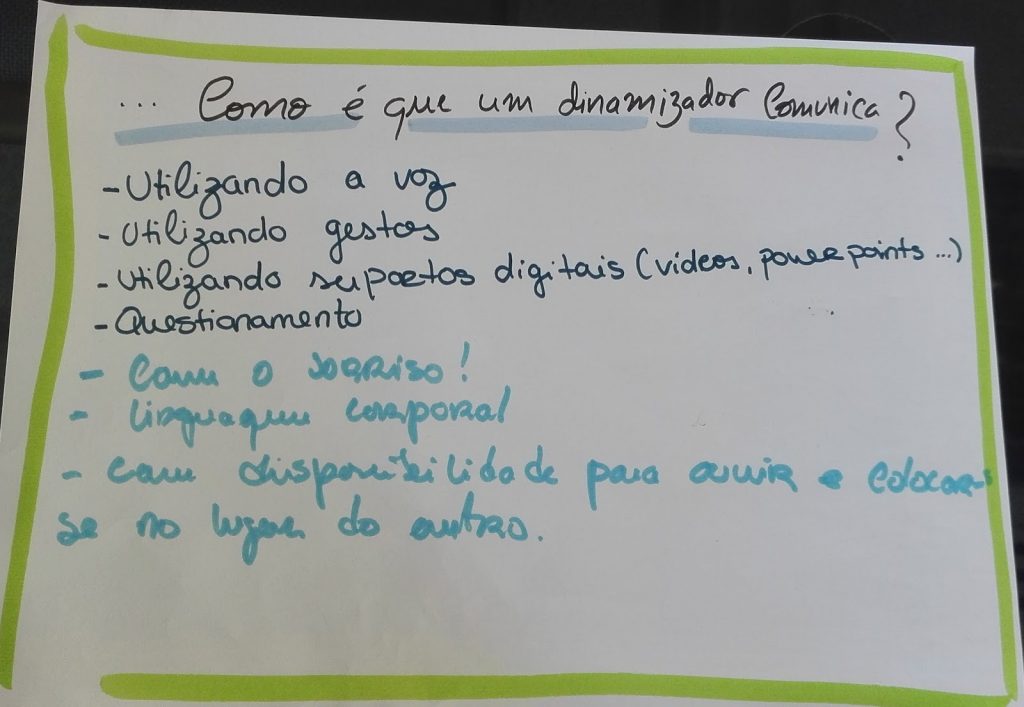 ... Como é que um dinamizador Comunica?
- Utilizando a voz
- Utilizando gestos
- Utilizando suportos digitais (vídeos, powerpoints ...)
- Questionamento
- Com o sorriso!
- linguagem corporal
- com disponibilidade para ouvir e colocar-
se no lugar do outro.